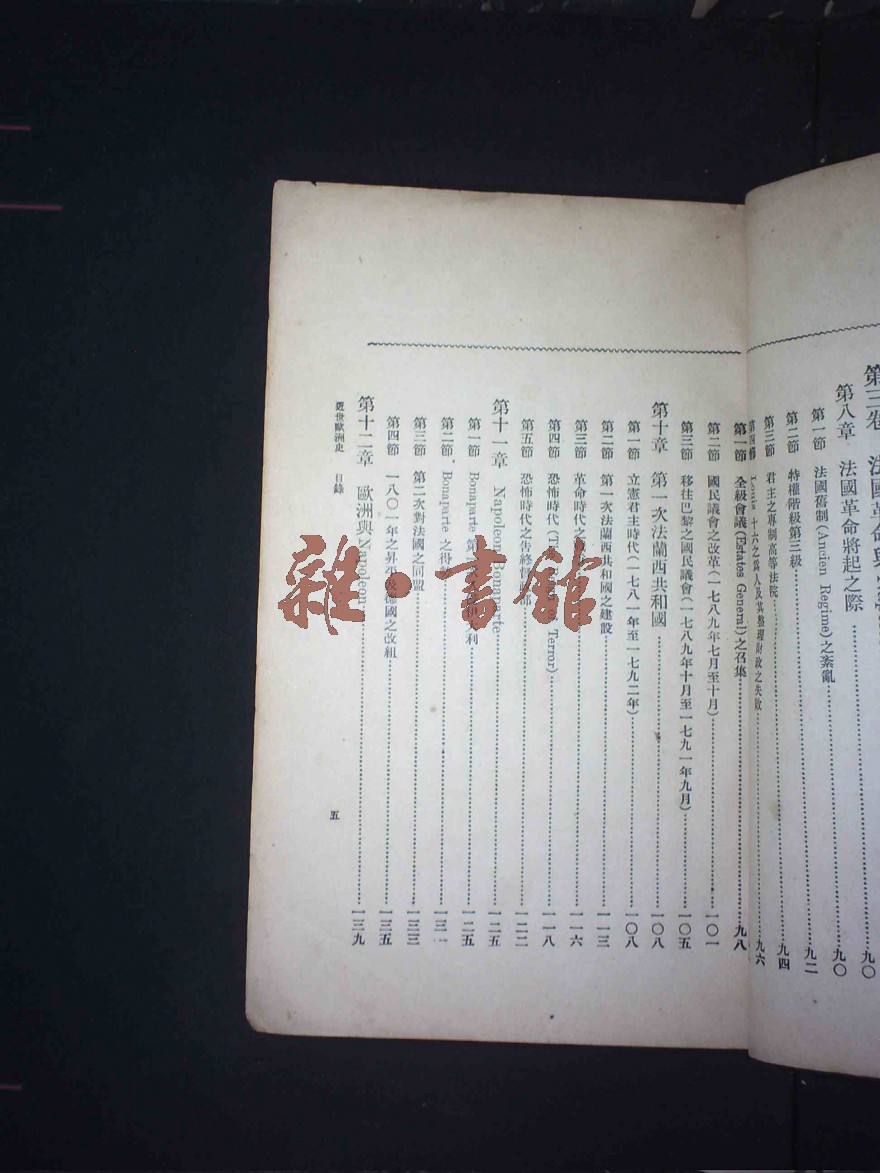 第三卷 法國革命與
第八章 法國革命將起之際……九〇
第一節 法國舊制(Ancien Regime)之紊亂……九〇
第二節 特權階級第三級……九二
第三節 君主之專制高等法院……九四
第四節 Louis 十六之爲人及其整理財政之失敗……九六
第一節 全級會議(Estates General)之召集……九八
第二節 國民議會之改革(一七八九年七月至十月)……一〇一
第三節 移往巴黎之國民議會(一七八九年十月至一七九一年九月)……一〇五
第十章 第一次法蘭西共和國……一〇八
第一節 立憲君主時代(一七八一年至一七九二年)……一〇八
第二節 第一次法蘭西共和國之建設……一一三
第三節 革命時代之……一一六
第四節 恐怖時代(T Terror)……一一八
第五節 恐怖時代之告終 部……一二二
第十一章 Napoleon Bonaparte……一二五
第一節 Bonaparte 第 利……一二五
第二節 Bonaparte 之得……一三一
第三節 第二次對法國之同盟……一三三
第四節 一八〇一年之昇平及德國之改組……一三五
第十二章 歐洲與Napoleon……一三九
近世歐洲史 目錄
五
雜·書館